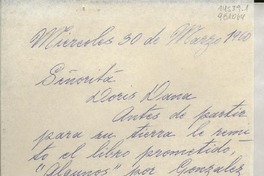 Miercoles 30 de Marzo 1960
Señorita
Doris Dana
Antes de partir
para su tierra le remi-
to el libro prometido.
"Algunos" por Gonzalez